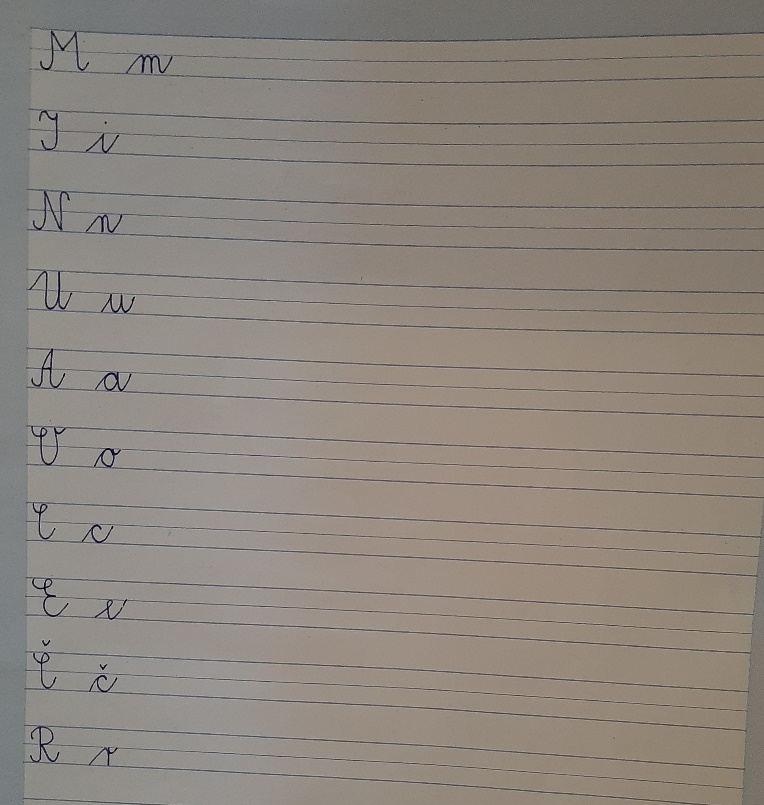 M m
I i
N n
U u
A a
O o
C c
E e
Č č
R r